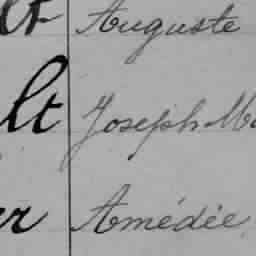 lt Auguste
lt Joseph Ma
er Amédée